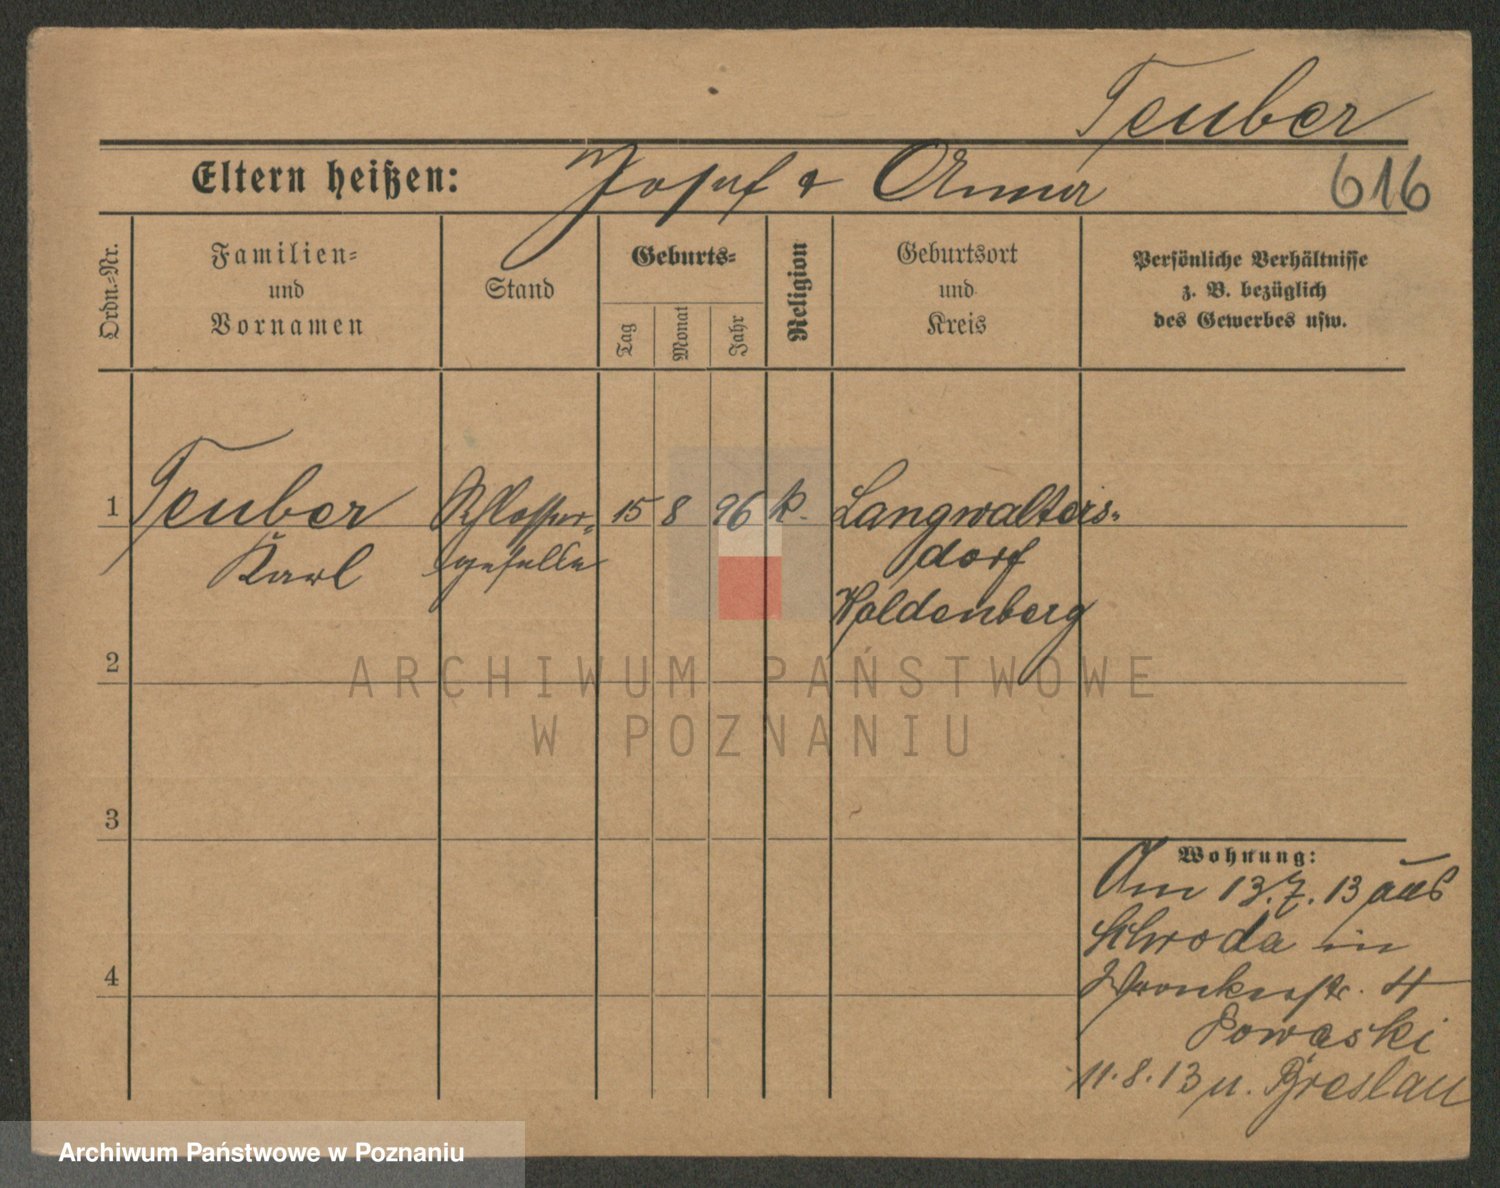 Teuber
Eltern heißen: Josef & Anna 616
Ordn.-Nr.
Familien-
und
Vornamen
Stand
Geburts-
Tag
Monat
Jahr
Religion
Geburtsort
und
Kreis
Persönliche Verhältnisse
z. B. bezüglich
des Gewerbes usw.
1 Teuber Schlosser- 15 8 96 k. Langwalters-
Karl geselle dorf
Waldenberg
2
3
4
Wohnung:
Am 13.7.13 aus
Schroda in
Wronkerstr. 4
Powaski
11.8.13 n. Breslau
ARCHIWUM PAŃSTWOWE
W POZNANIU
Archiwum Państwowe w Poznaniu